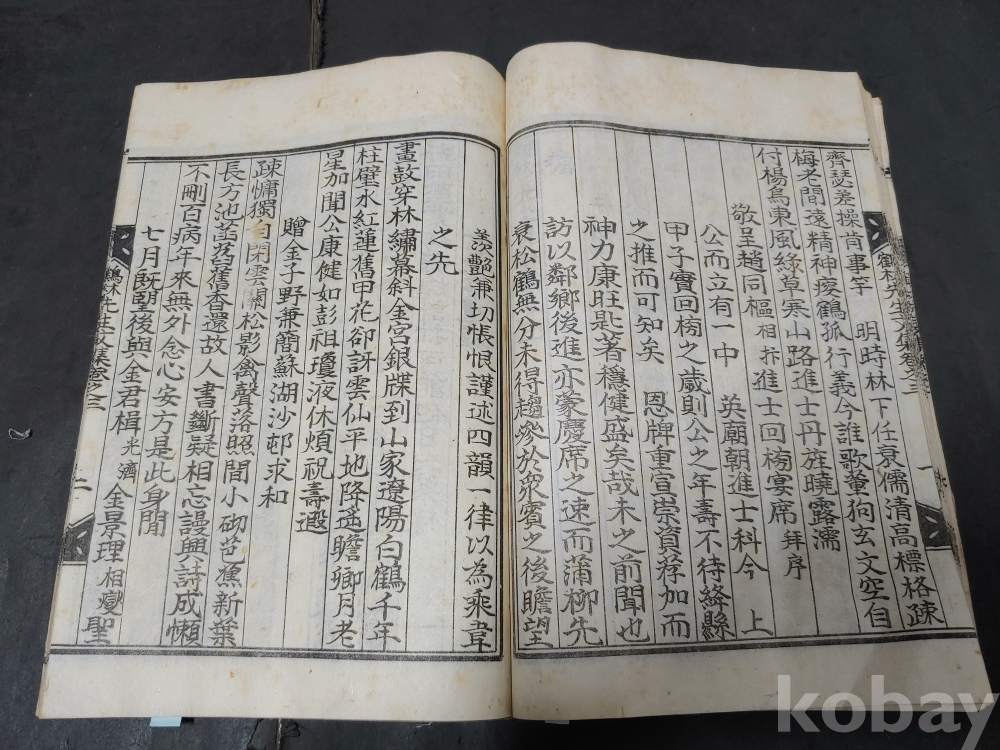 齊瑟差操肯事竽　明時林下任衰儒清高標格疎
梅老閒遠精神瘦鶴孤行義今誰歌董狗玄文空自
付楊烏東風綠草寒山路進士丹旌曉露濡
敬呈趙同樞相抃進士回榜宴席幷序
公而立有一中　英廟朝進士科今　上
甲子實回榜之歲則公之年壽不待絳縣
之推而可知矣　恩牌重宣崇資荐加而
神力康旺匙著穩健盛矣哉未之前聞也
訪以鄰鄉後進亦蒙慶席之速而蒲柳先
衰松鶴無分未得趨參於衆賓之後瞻望
羨艶兼切悵恨謹述四韻一律以為乘韋
之先
畫鼓穿林繡幕斜金宮銀牒到山家遼陽白鶴千年
柱璧水紅蓮舊甲花卻訝雲仙平地降遙瞻卿月老
星加聞公康健如彭祖瓊液休煩祝壽遐
贈金子野兼簡蘇湖沙邨求和
疎慵獨自閉雲關松影禽聲落照間小砌芭蕉新葉
長方池菡萏舊香還故人書斷疑相忘謾興詩成懶
不刪百病年來無外念心安方是此身閒
七月旣望後與金君楫光濟金景理相燮聖
二
一
kobay